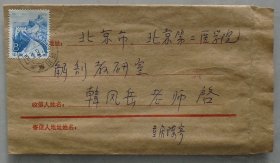 北京市、北京第二医学院
解剖教研室
收信人姓名：韩风岳 老师 启
寄信人地址姓名：